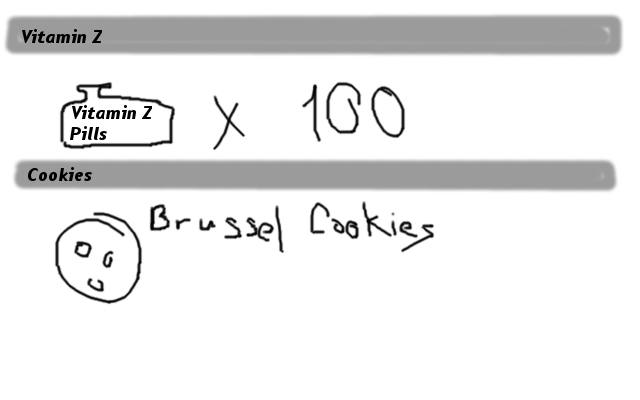 Vitamin Z
Vitamin Z
Pills
X 100
Cookies
Brussel Cookies